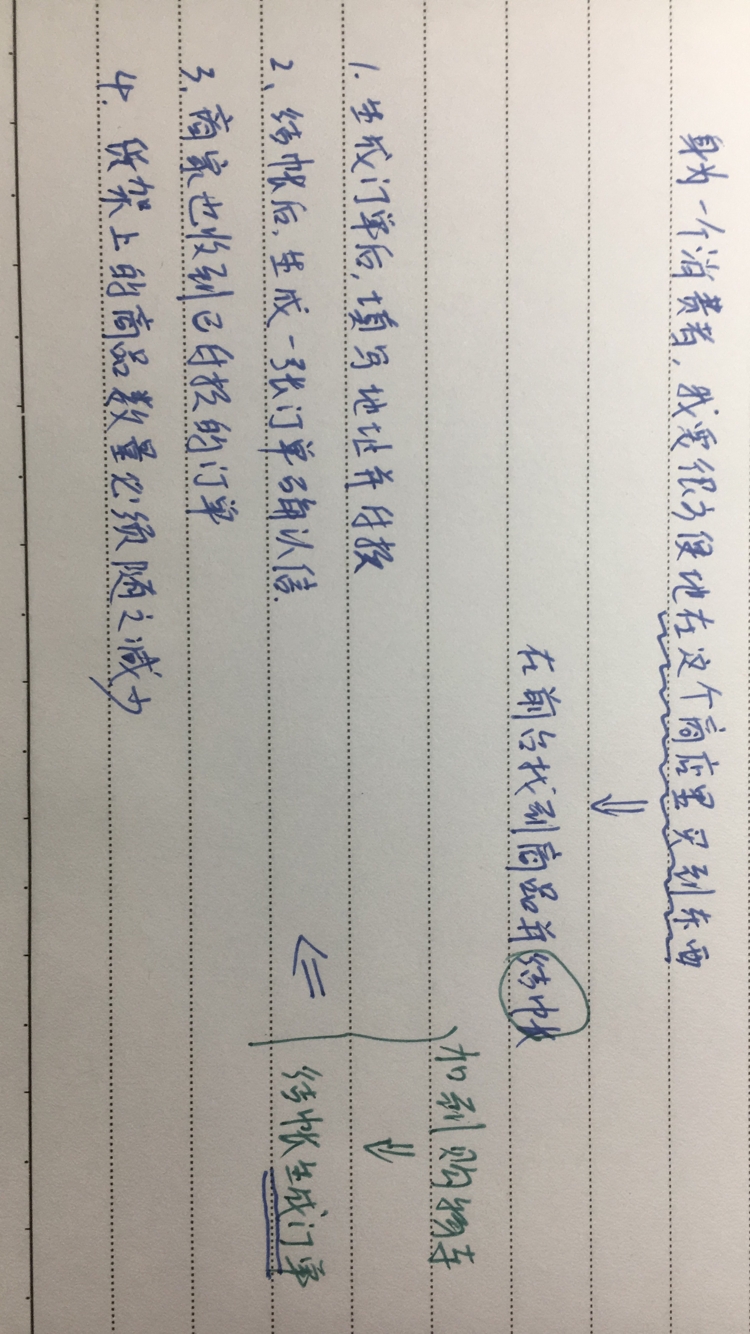 身为一个消费者，我要很方便地在这个商店里买到东西
⇓
在前台找到商品并结帐
加到购物车
⇓
结帐生成订单
⇐
1. 生成订单后，填写地址并付款
2、结帐后，生成一张订单确认信
3. 商家也收到已付款的订单
4. 货架上的商品数量必须随之减少